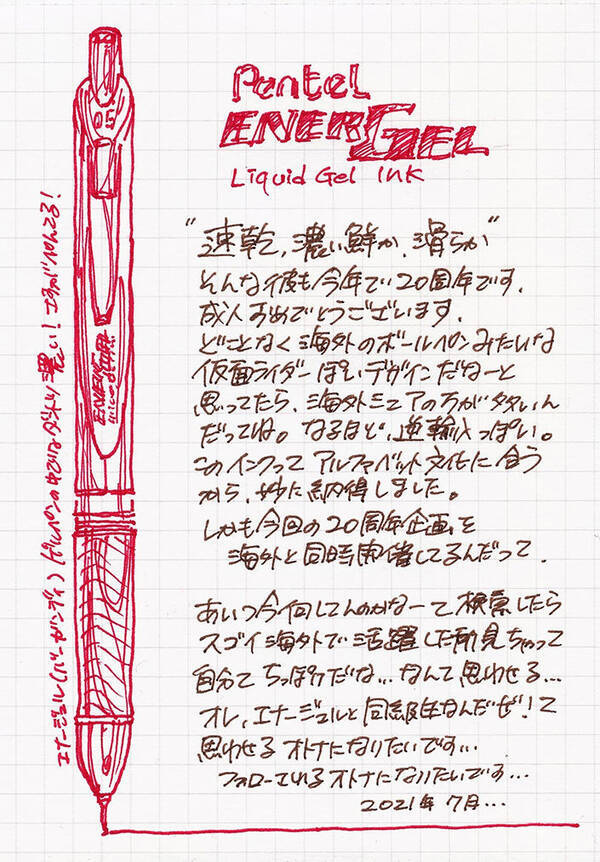 Pentel
ENERGEL
Liquid Gel Ink
"速乾、濃い鮮か、滑らか"
そんな彼も今年で20周年です。
成人おめでとうございます。
どことなく海外のボールペンみたいな
仮面ライダーぽいデザインだなーと
思ってたら、海外シェアの方が多いん
だってね。なるほど、逆輸入っぽい。
このインクって アルファベット文化に合う
から、妙に納得しました。
しかも今回の20周年企画を
海外と同時開催してるんだって。
あいつ今何してんのかなーて検索したら
スゴイ海外で活躍した所見ちゃって
自分て ちっぽけだな…なんて思わせる…
オレ、エナージェルと同級生なんだぜ!って
思わせるオトナになりたいです…
フォローされるオトナになりたいです…
2021年 7月…
エナージェル(バーガンディ)
05
ENERGEL